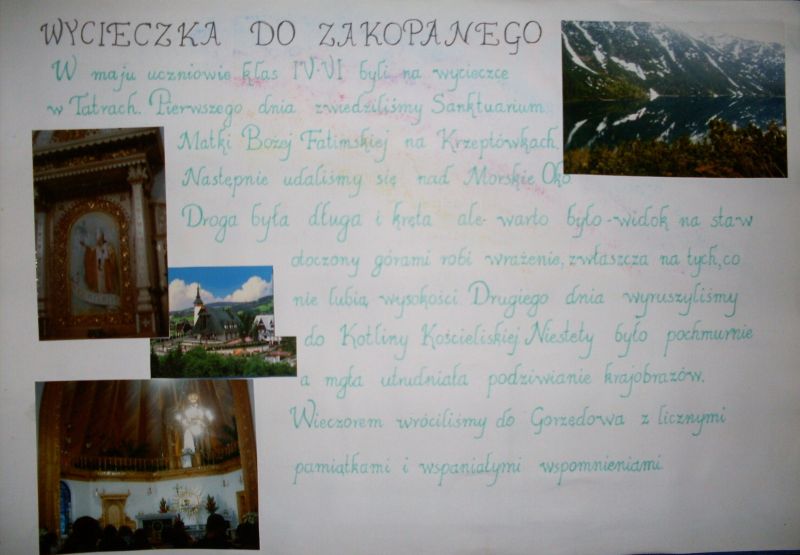 WYCIECZKA DO ZAKOPANEGO
W maju uczniowie klas IV-VI byli na wycieczce
w Tatrach. Pierwszego dnia zwiedziliśmy Sanktuarium
Matki Bożej Fatimskiej na Krzeptówkach.
Następnie udaliśmy się nad Morskie Oko.
Droga była długa i kręta ale warto było - widok na staw
otoczony górami robi wrażenie, zwłaszcza na tych, co
nie lubią wysokości. Drugiego dnia wyruszyliśmy
do Kotliny Kościeliskiej. Niestety było pochmurnie
a mgła utrudniała podziwianie krajobrazów.
Wieczorem wróciliśmy do Gorzędowa z licznymi
pamiątkami i wspaniałymi wspomnieniami.